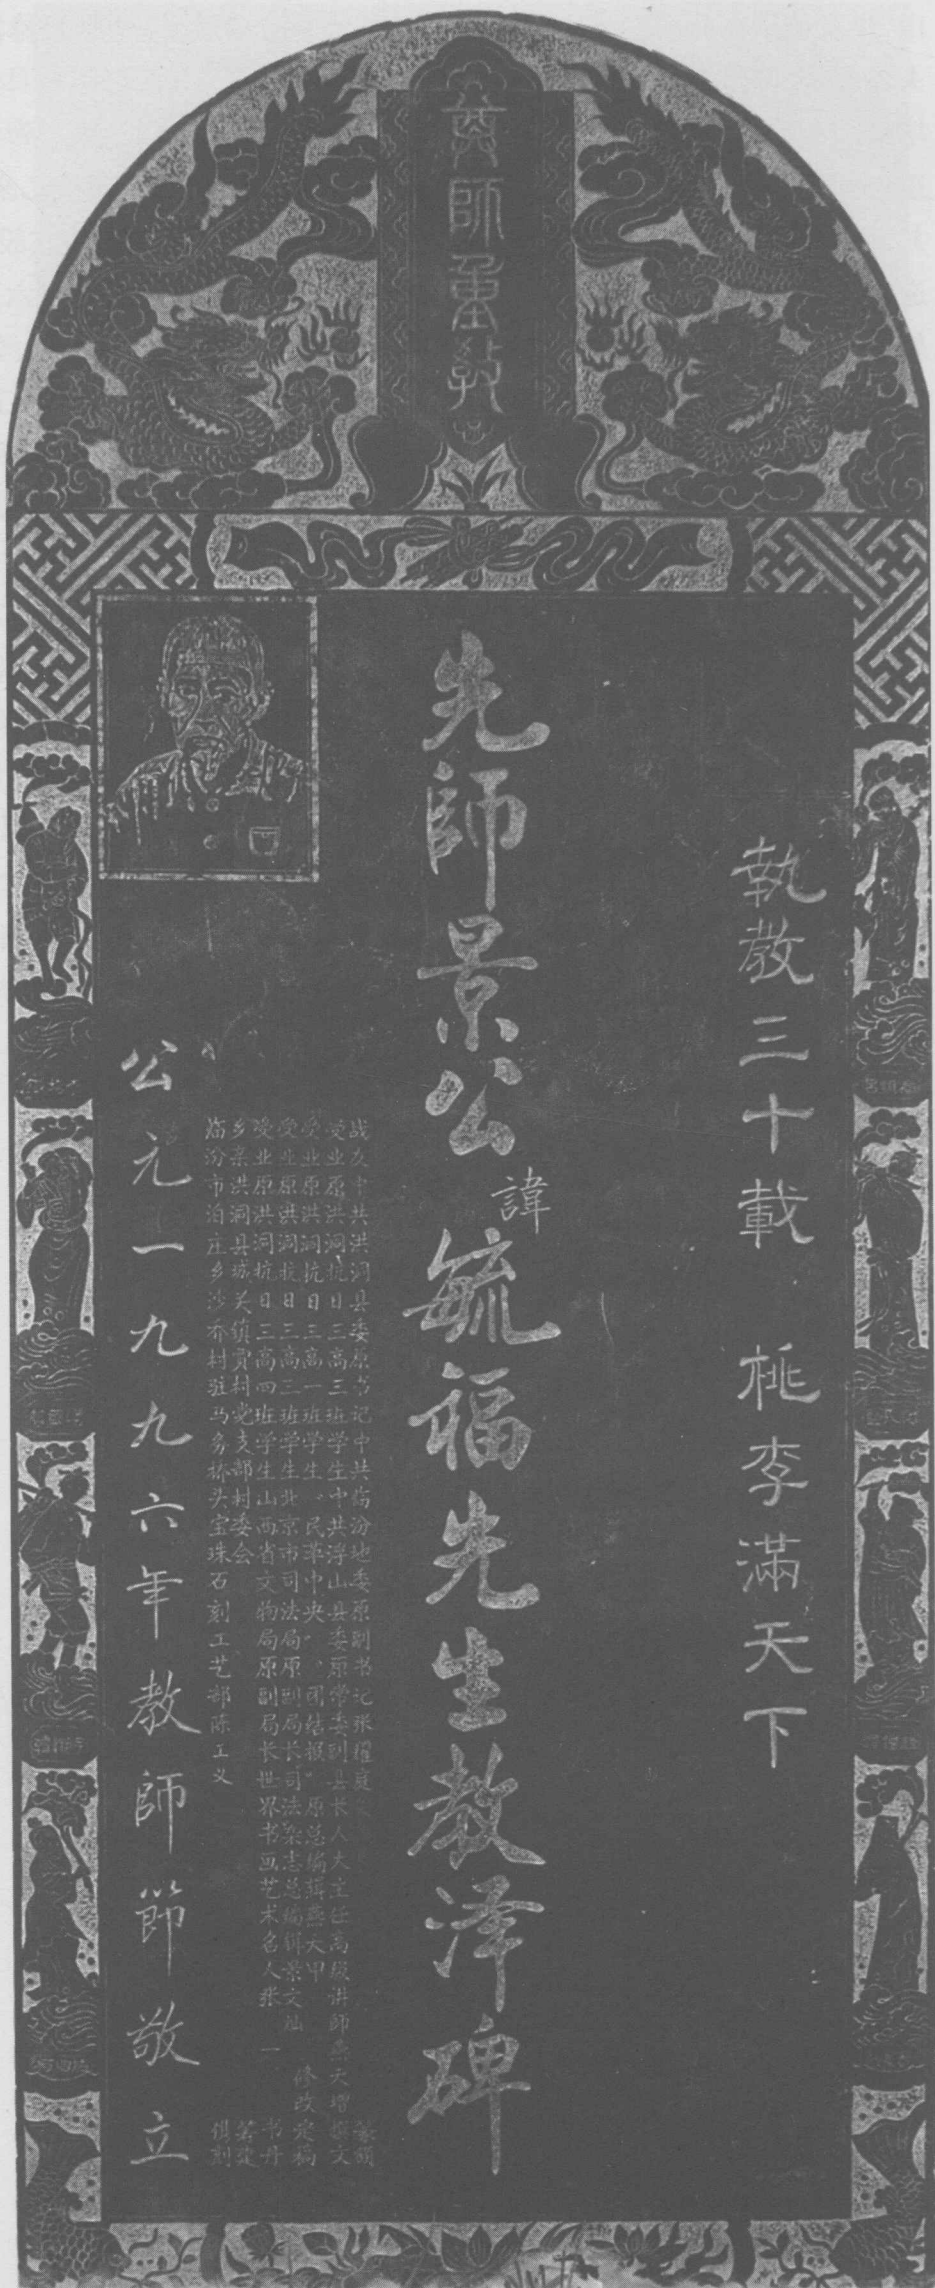 尊師重教
執教三十載　桃李滿天下
先師景公諱毓福先生教泽碑
战友中共洪洞县委原书记中共临汾地委原副书记张耀庭 篆额
受业原洪洞抗日三高三班学生中共浮山县委原常委副县长人大主任高级讲師燕天增 撰文
受业原洪洞抗日三高一班学生、民革中央、“团结报”原总编辑燕天甲 修改定稿
受业原洪洞抗日三高三班学生北京市司法局原副局长司法杂志总编辑景文灿
受业原洪洞抗日三高四班学生山西省文物局原副局长世界书画艺术名人张一 书丹
乡亲洪洞县城关镇贾村党支部村委会 筹建
临汾市泊庄乡沙乔村驻马务桥头宝珠石刻工艺部陈工义 镌刻
公元一九九六年教師節敬立